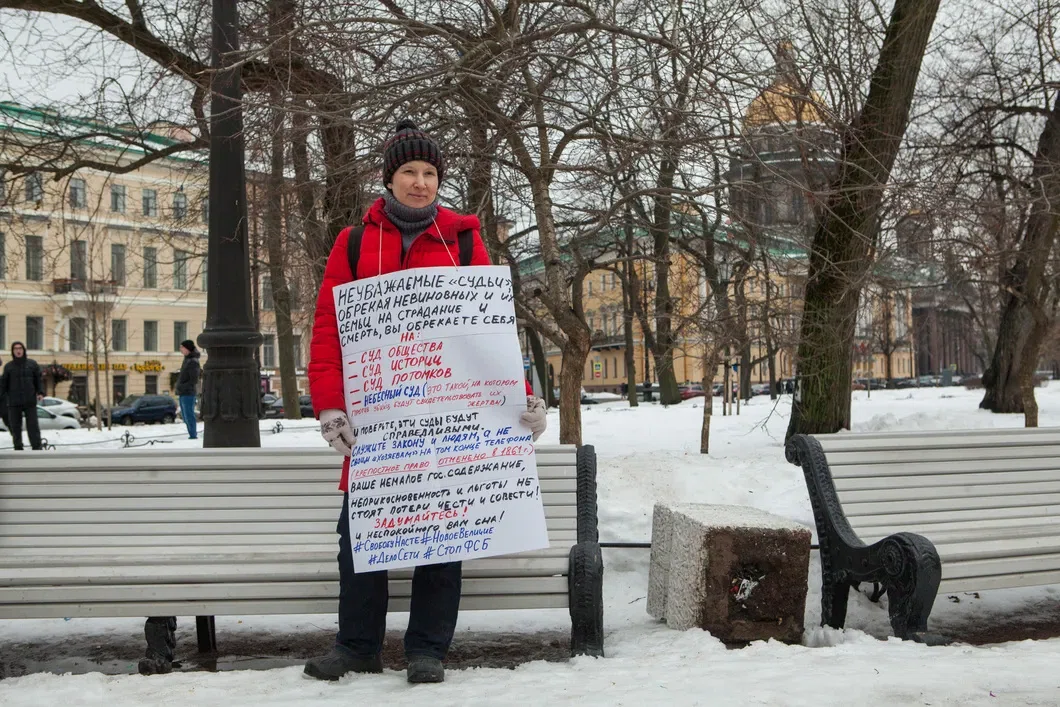 НЕУВАЖАЕМЫЕ «СУДЬИ»
ОБРЕКАЯ НЕВИНОВНЫХ И ИХ
СЕМЬИ НА СТРАДАНИЕ И
СМЕРТЬ, ВЫ ОБРЕКАЕТЕ СЕБЯ
НА:
- СУД ОБЩЕСТВА
- СУД ИСТОРИИ
- СУД ПОТОМКОВ
- НЕБЕСНЫЙ СУД (ЭТО ТАКОЙ, НА КОТОРОМ
ПРОТИВ УБИЙЦ БУДУТ СВИДЕТЕЛЬСТВОВАТЬ ИХ ЖЕРТВЫ)
И ПОВЕРЬТЕ, ЭТИ СУДЫ БУДУТ
СПРАВЕДЛИВЫМИ.
СЛУЖИТЕ ЗАКОНУ И ЛЮДЯМ, А НЕ
СВОИМ «ХОЗЯЕВАМ» НА ТОМ КОНЦЕ ТЕЛЕФОНА
(КРЕПОСТНОЕ ПРАВО ОТМЕНЕНО В 1861 г.)
ВАШЕ НЕМАЛОЕ ГОС. СОДЕРЖАНИЕ,
НЕПРИКОСНОВЕННОСТЬ И ЛЬГОТЫ НЕ
СТОЯТ ПОТЕРИ ЧЕСТИ И СОВЕСТИ!
ЗАДУМАЙТЕСЬ!
И НЕСПОКОЙНОГО ВАМ СНА!
#СВОБОДУНАСТЕ #НОВОЕВЕЛИЧИЕ
#ДЕЛОСЕТИ #СТОПФСБ